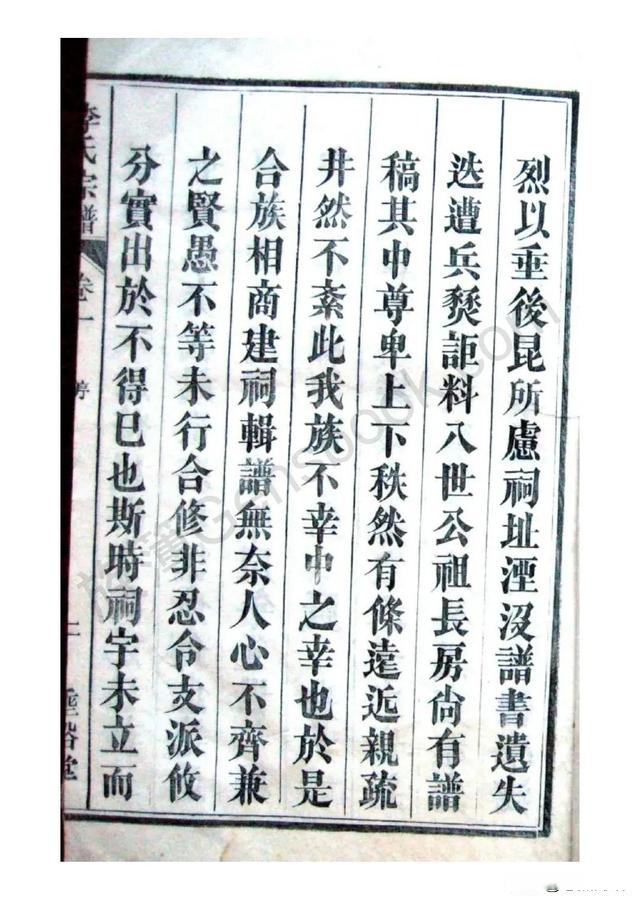 烈以垂後昆所慮祠址湮沒譜書遺失
迭遭兵燹詎料八世公祖長房尚有譜
稿其中尊卑上下秩然有條遠近親疏
井然不紊此我族不幸中之幸也於是
合族相商建祠輯譜無奈人心不齊兼
之賢愚不等未行合修非忍令支派攸
分實出於不得已也斯時祠宇未立而
李氏宗譜 卷一 序